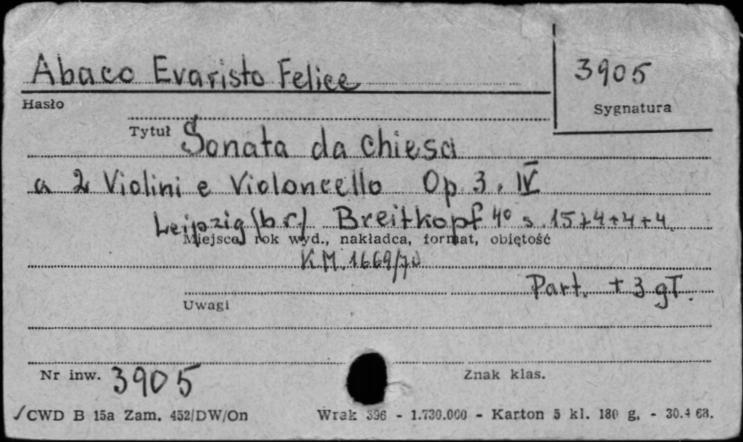 Abaco Evaristo Felice
3905
Hasło
Sygnatura
Tytuł Sonata da chiesa
a 2 Violini e Violoncello Op 3. IV
Leipzig (br) Breitkopf 4º s. 15+4+4+4.
Miejsce, rok wyd., nakładca, format, objętość
K.M. 1669/70
Part. + 3 gł.
Uwagi
Nr inw. 3905
Znak klas.
✓CWD B 15a Zam. 452/DW/On Wrak 396 - 1.730.000 - Karton 5 kl. 180 g. - 30.4 68.